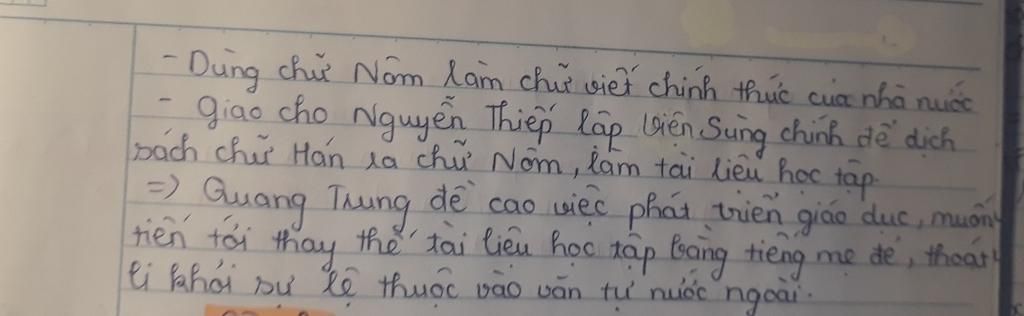 - Dùng chữ Nôm làm chữ viết chính thức của nhà nước
- Giao cho Nguyễn Thiếp lập Viện Sùng chính để dịch
sách chữ Hán ra chữ Nôm, làm tài liệu học tập.
=> Quang Trung đề cao việc phát triển giáo dục, muốn
tiến tới thay thế tài liệu học tập bằng tiếng mẹ đẻ, thoát
li khỏi sự lệ thuộc vào văn tự nước ngoài.